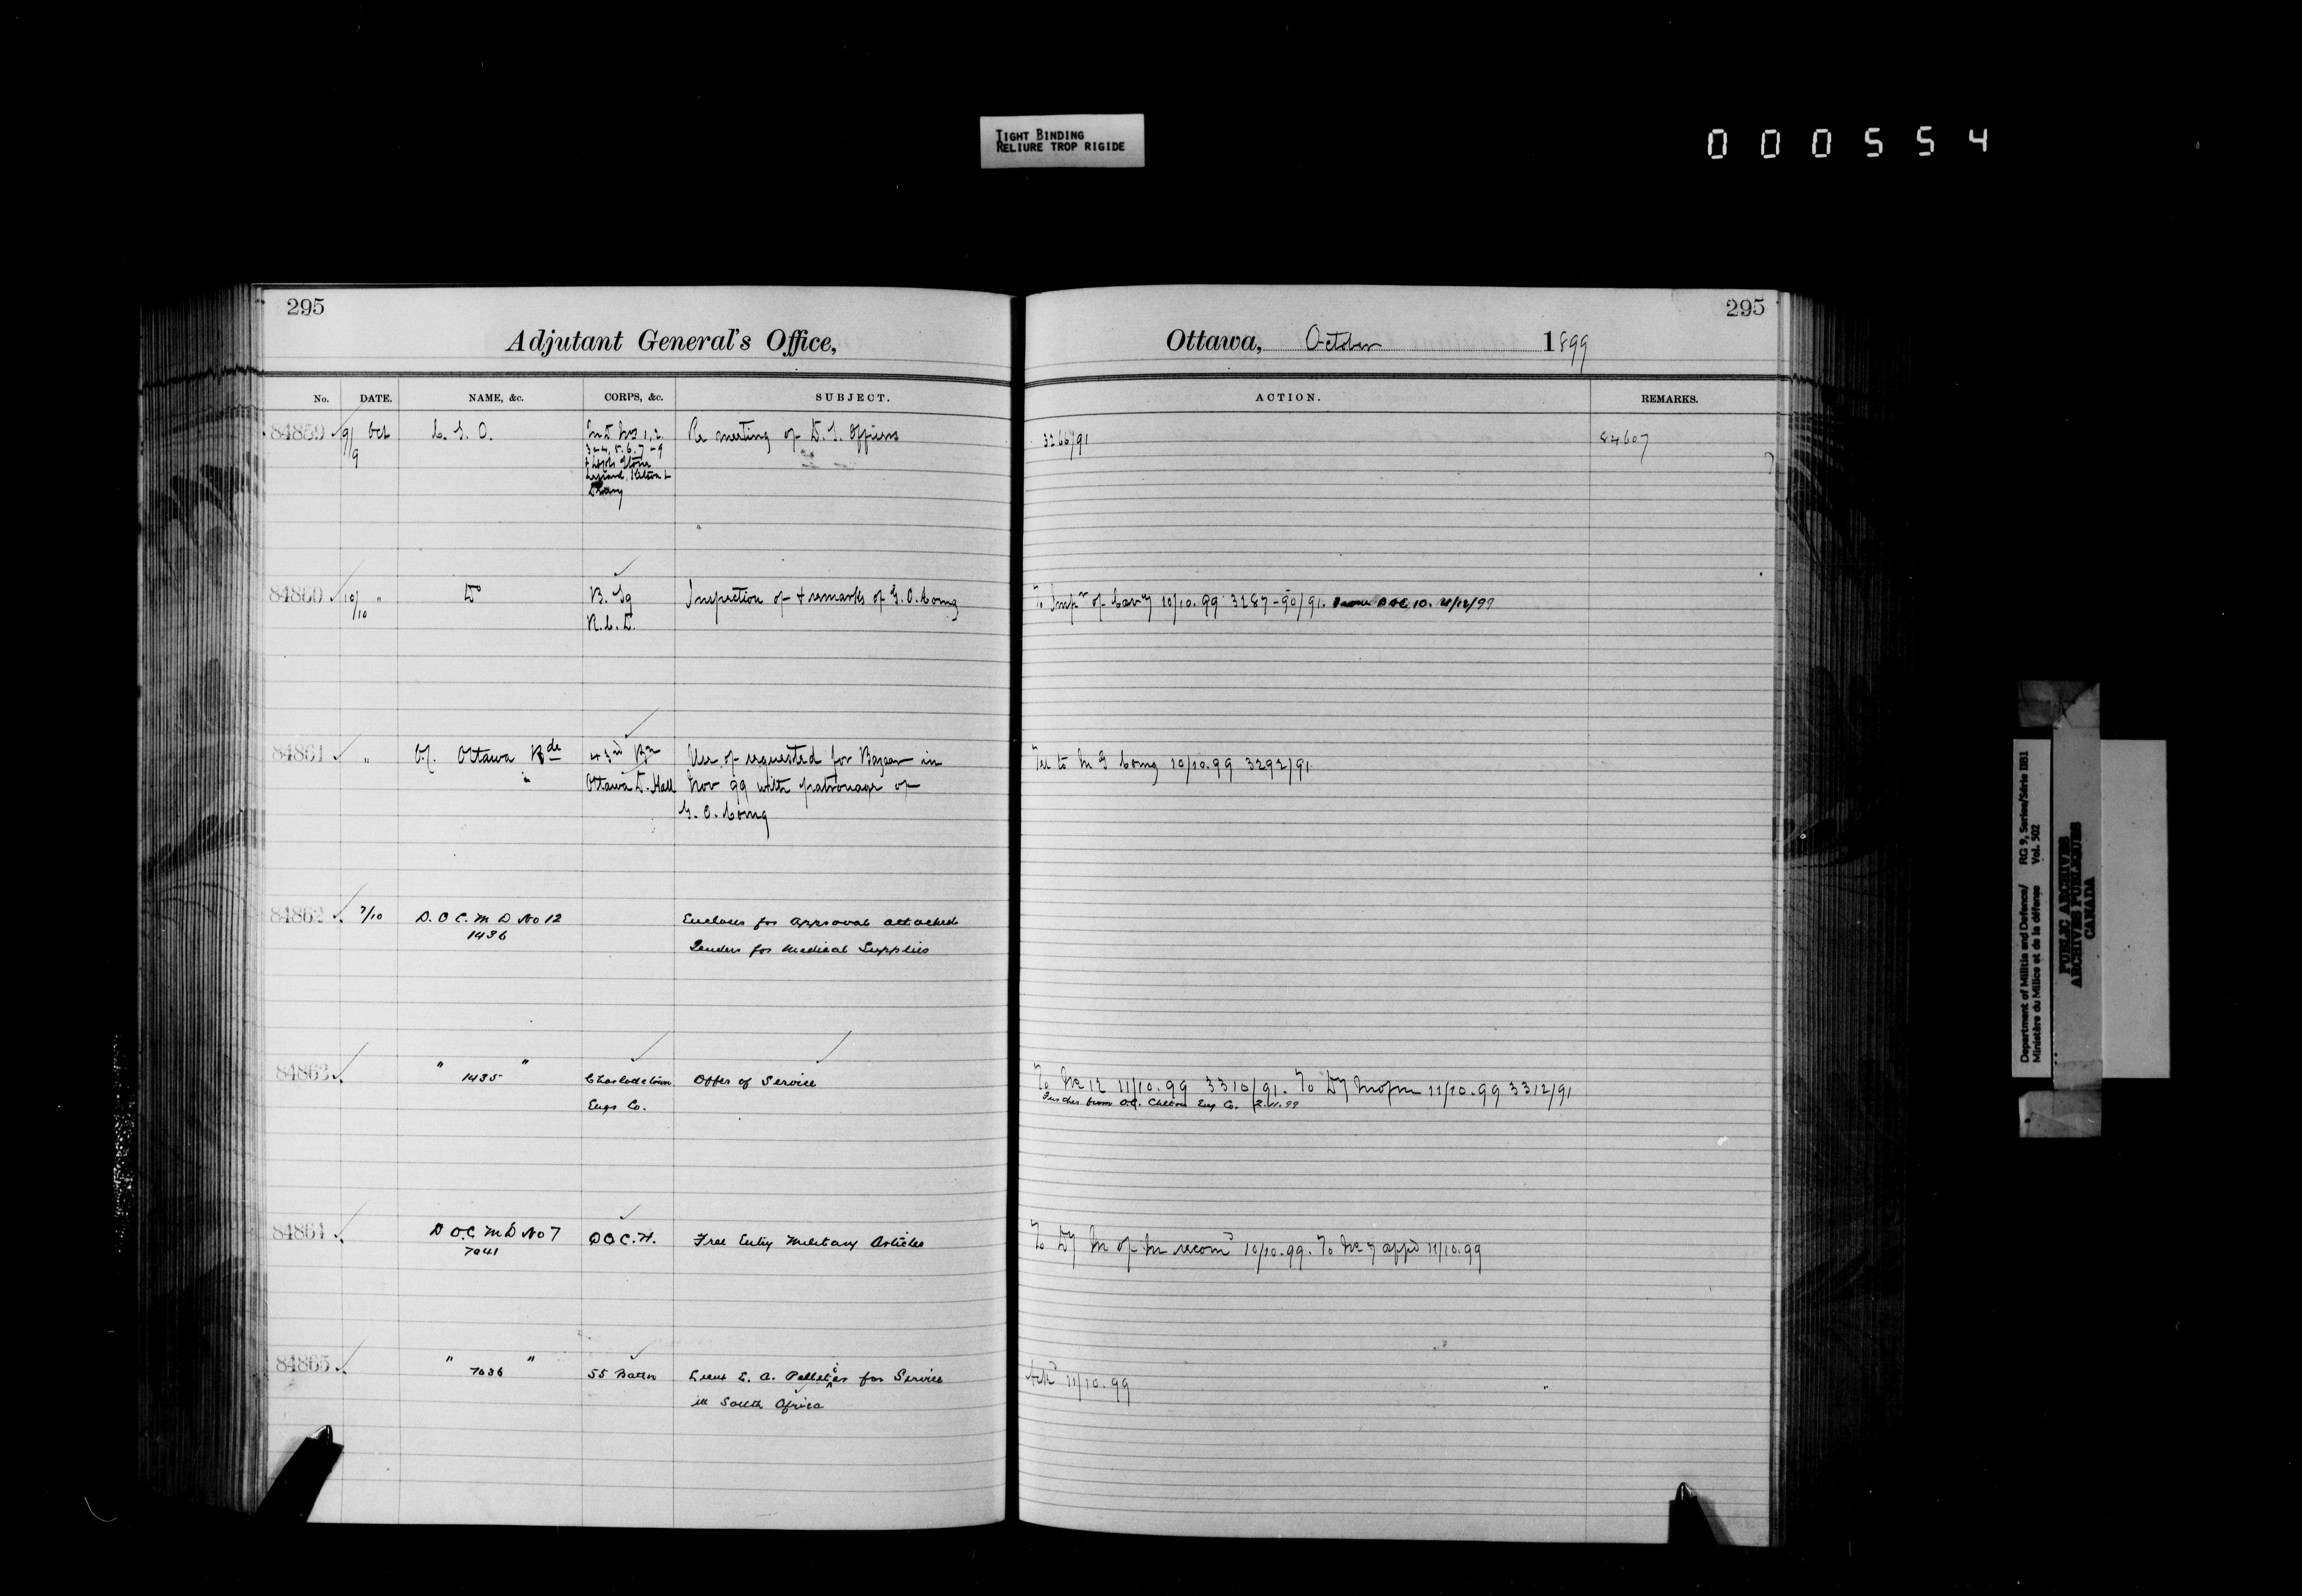 TIGHT BINDING
RELIURE TROP RIGIDE
000554
295
Adjutant General's Office,
No. DATE. NAME, &c. CORPS, &c. SUBJECT.
84859 9/9 Oct C. S. O. M D Nos 1, 2. Re meeting of D. S. Officers
3 & 4, 5. 6. 7 - 9
84860 10/10 " Do B. Sq Inspection of & remarks of G. O. Comg
R. C. D.
84861 " O.C. Ottawa Bde 43rd Bn Use of requested for Bazaar in
Ottawa D. Hall Nov 99 with patronage of
G. O. Comg
84862 7/10 D. O C. M D No 12 Encloses for approval attached
1436 Tenders for Medical Supplies
84863 " 1435 " Charlottetown Offer of Service
Engs Co.
84864 D O.C M D No 7 D O C. H. Free Entry Military Articles
7041
84865 " 7036 " 55 Battn Lieut E. A. Pelletier for Service
in South Africa
295
Ottawa, October 1899
ACTION. REMARKS.
3266/91 84607
To Inspr of Cavy 10/10.99 3287-90/91. D O C 10. 21/12/99
Tel to M G Comg 10/10.99 3292/91
To No 12 11/10.99 3310/91. To Dy M of M 11/10.99 3312/91
Further from O.C. Chtown Eng Co. 2.11.99
To Dy M of M recomd 10/10.99. To No 7 appd 11/10.99
Ackd 11/10.99
Department of Militia and Defence/ RG 9, Series/Série IIB1
Ministère du Milice et de la défense Vol. 502
PUBLIC ARCHIVES
ARCHIVES PUBLIQUES
CANADA